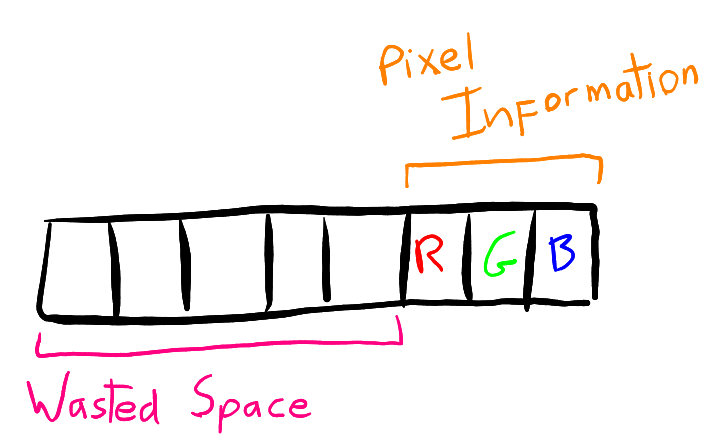 Pixel
Information
R G B
Wasted Space